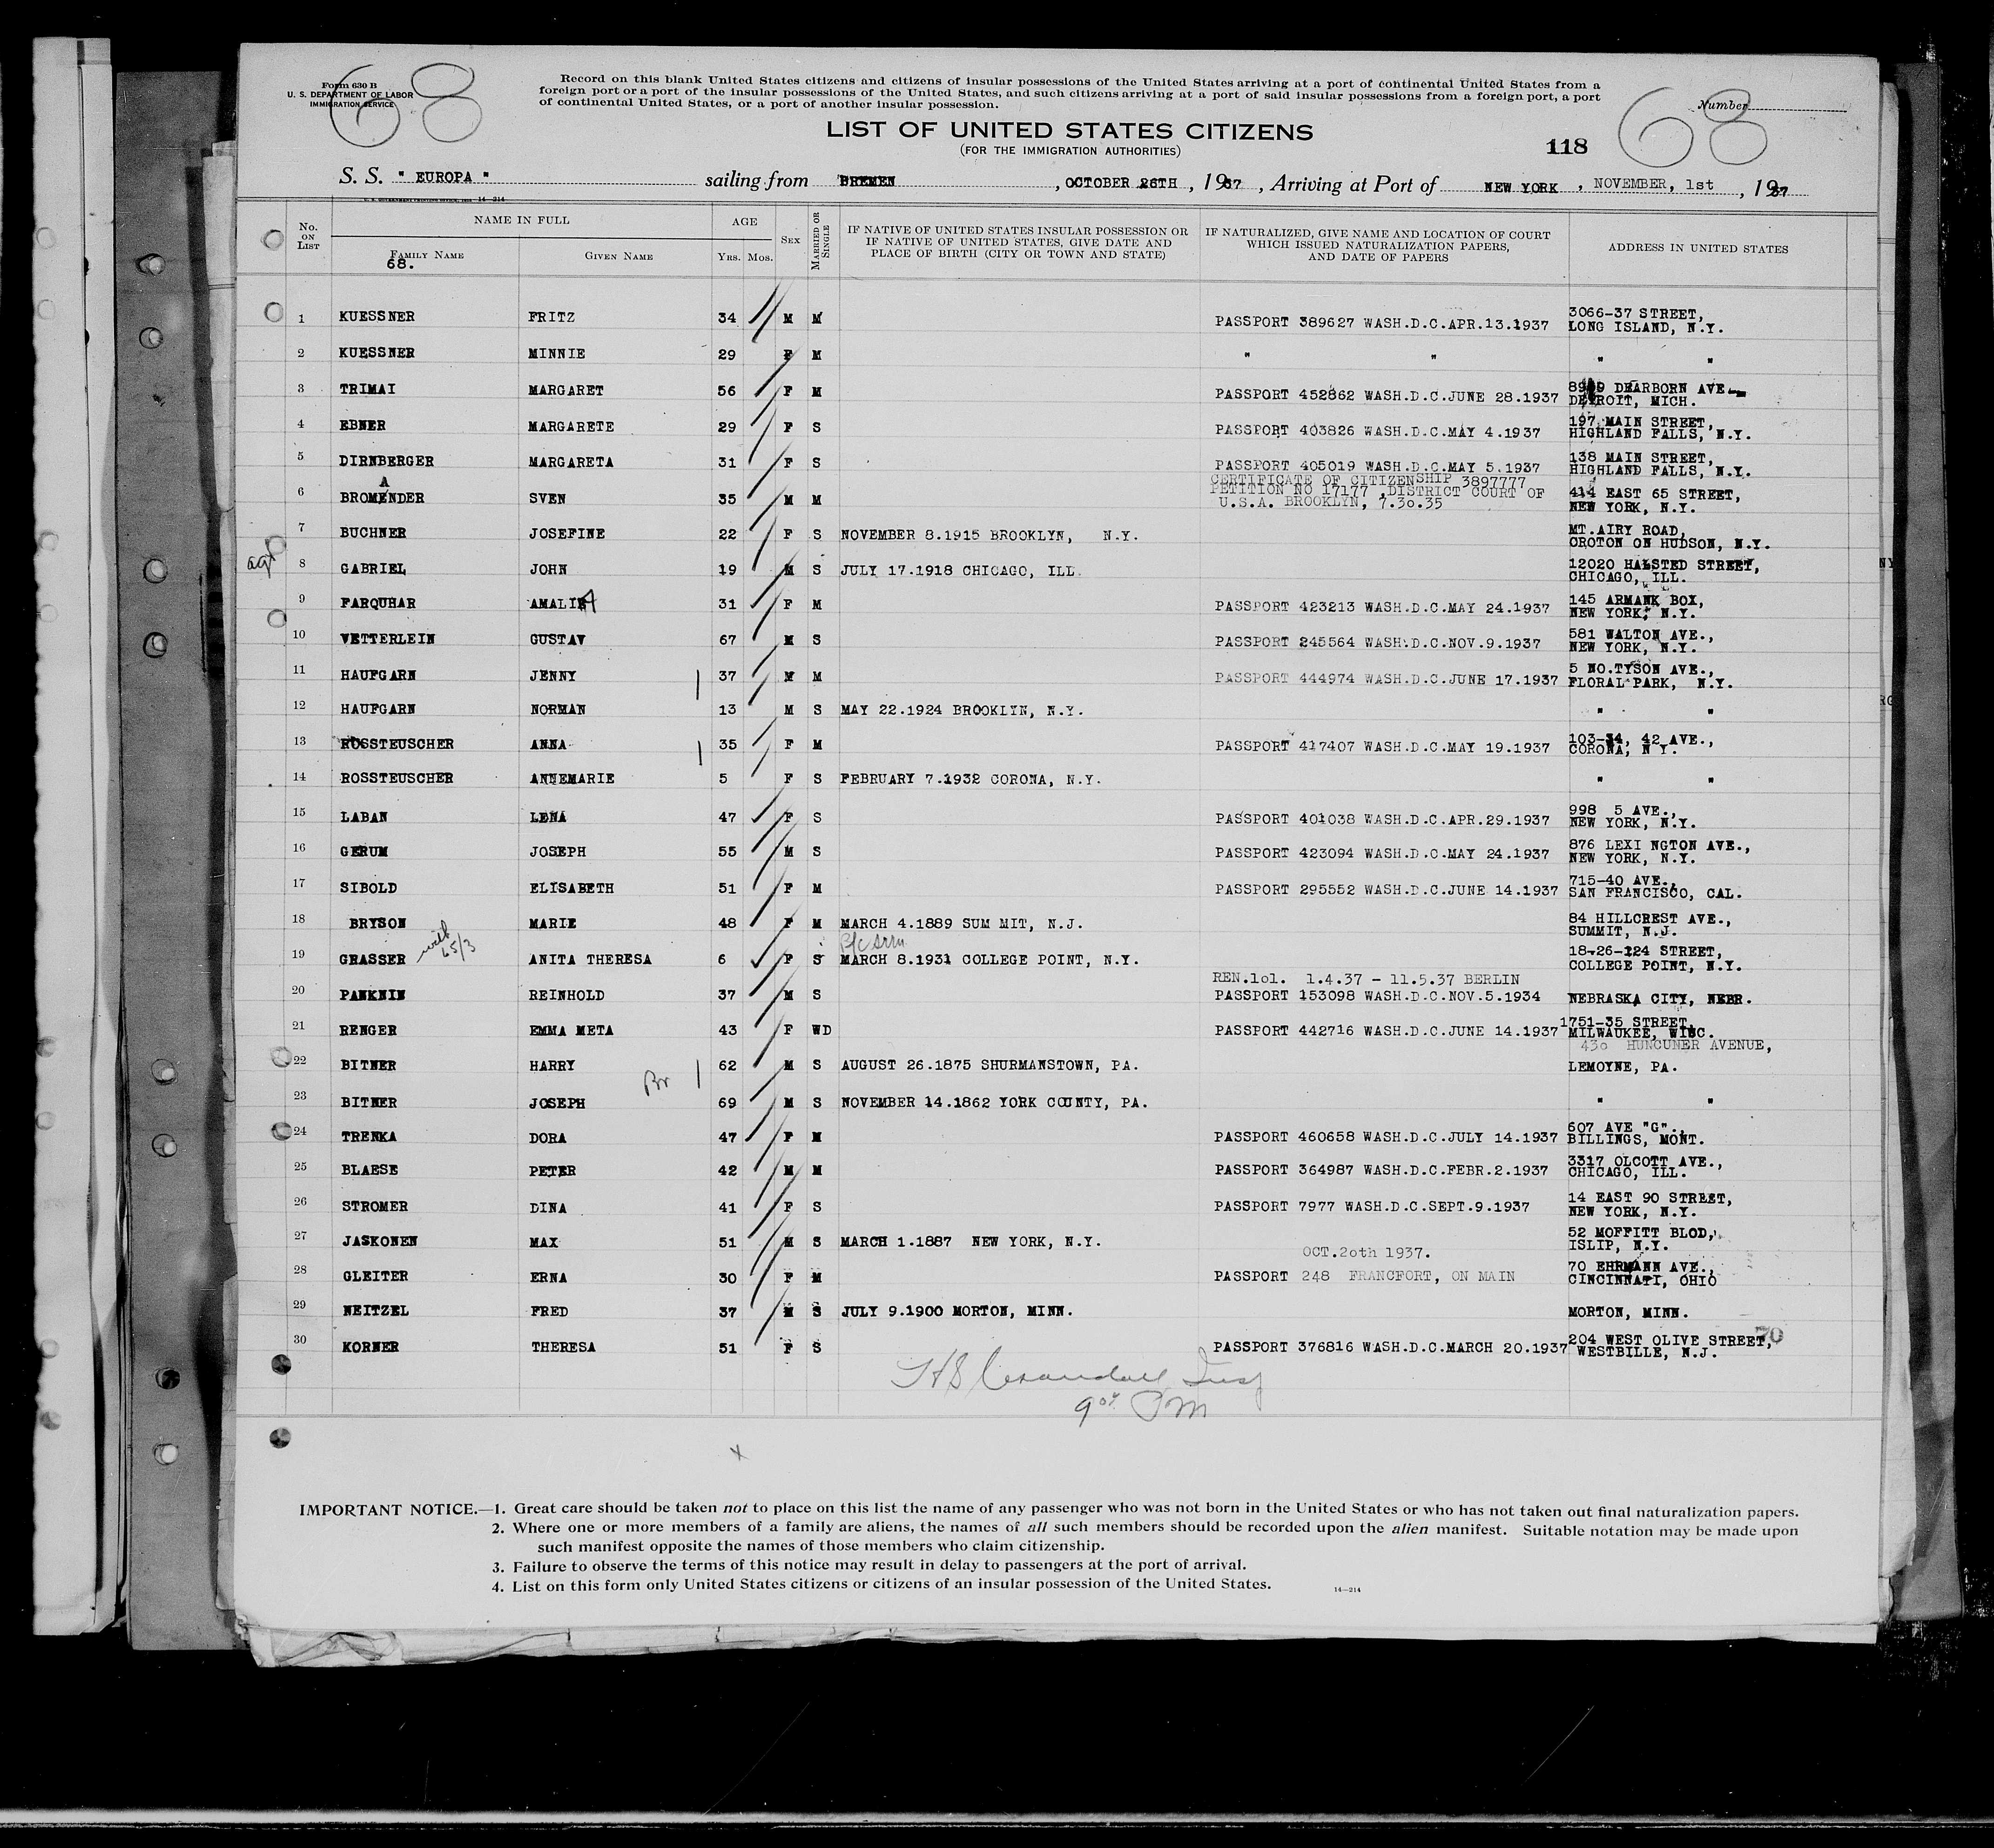 68
Form 630 B
U. S. DEPARTMENT OF LABOR
IMMIGRATION SERVICE
Record on this blank United States citizens and citizens of insular possessions of the United States arriving at a port of continental United States from a
foreign port or a port of the insular possessions of the United States, and such citizens arriving at a port of said insular possessions from a foreign port, a port
of continental United States, or a port of another insular possession.
Number
68
LIST OF UNITED STATES CITIZENS
(FOR THE IMMIGRATION AUTHORITIES)
118
S. S. " EUROPA " sailing from BREMEN , OCTOBER 26TH , 1937 , Arriving at Port of NEW YORK , NOVEMBER, 1st , 1937
No. ON LIST
NAME IN FULL
FAMILY NAME
68.
GIVEN NAME
AGE
YRS. MOS.
SEX
MARRIED OR SINGLE
IF NATIVE OF UNITED STATES INSULAR POSSESSION OR
IF NATIVE OF UNITED STATES, GIVE DATE AND
PLACE OF BIRTH (CITY OR TOWN AND STATE)
IF NATURALIZED, GIVE NAME AND LOCATION OF COURT
WHICH ISSUED NATURALIZATION PAPERS,
AND DATE OF PAPERS
ADDRESS IN UNITED STATES
1 KUESSNER FRITZ 34 M M PASSPORT 389627 WASH.D.C.APR.13.1937 3066-37 STREET,
LONG ISLAND, N.Y.
2 KUESSNER MINNIE 29 F M " " " "
3 TRIMAI MARGARET 56 F M PASSPORT 452862 WASH.D.C.JUNE 28.1937 DEARBORN AVE
DETROIT, MICH.
4 EBNER MARGARETE 29 F S PASSPORT 403826 WASH.D.C.MAY 4.1937 197 MAIN STREET,
HIGHLAND FALLS, N.Y.
5 DIRNBERGER MARGARETA 31 F S PASSPORT 405019 WASH.D.C.MAY 5.1937 138 MAIN STREET,
HIGHLAND FALLS, N.Y.
A
CERTIFICATE OF CITIZENSHIP 3897777
6 BROMENDER SVEN 35 M M PETITION NO 17177 ,DISTRICT COURT OF 414 EAST 65 STREET,
U.S.A. BROOKLYN, 7.3o.35 NEW YORK, N.Y.
7 BUCHNER JOSEFINE 22 F S NOVEMBER 8.1915 BROOKLYN, N.Y. MT.AIRY ROAD,
CROTON ON HUDSON, N.Y.
8 GABRIEL JOHN 19 M S JULY 17.1918 CHICAGO, ILL. 12020 HALSTED STREET,
CHICAGO, ILL.
9 FARQUHAR AMALIA 31 F M PASSPORT 423213 WASH.D.C.MAY 24.1937 145 ARMANK BOX,
NEW YORK, N.Y.
10 VETTERLEIN GUSTAV 67 M S PASSPORT 245564 WASH.D.C.NOV.9.1937 581 WALTON AVE.,
NEW YORK, N.Y.
11 HAUFGARN JENNY 37 M PASSPORT 444974 WASH.D.C.JUNE 17.1937 5 NO.TYSON AVE.,
FLORAL PARK, N.Y.
12 HAUFGARN NORMAN 13 M S MAY 22.1924 BROOKLYN, N.Y. " "
13 ROSSTEUSCHER ANNA 35 F M PASSPORT 417407 WASH.D.C.MAY 19.1937 103-34, 42 AVE.,
CORONA, N Y.
14 ROSSTEUSCHER ANNEMARIE 5 F S FEBRUARY 7.1932 CORONA, N.Y. " "
15 LABAN LENA 47 F S PASSPORT 401038 WASH.D.C.APR.29.1937 998 5 AVE.,
NEW YORK, N.Y.
16 GERUM JOSEPH 55 M S PASSPORT 423094 WASH.D.C.MAY 24.1937 876 LEXI NGTON AVE.,
NEW YORK, N.Y.
17 SIBOLD ELISABETH 51 F M PASSPORT 295552 WASH.D.C.JUNE 14.1937 715-40 AVE.,
SAN FRANCISCO, CAL.
18 BRYSON MARIE 48 F M MARCH 4.1889 SUM MIT, N.J. 84 HILLCREST AVE.,
SUMMIT, N.J.
with 65/3
B/c
19 GRASSER ANITA THERESA 6 F S MARCH 8.1931 COLLEGE POINT, N.Y. 18-26-124 STREET,
COLLEGE POINT, N.Y.
REN.lol. 1.4.37 - 11.5.37 BERLIN
20 PANKNIN REINHOLD 37 M S PASSPORT 153098 WASH.D.C.NOV.5.1934 NEBRASKA CITY, NEBR.
21 RENGER EMMA META 43 F WD PASSPORT 442716 WASH.D.C.JUNE 14.1937 1751-35 STREET,
MILWAUKEE, WISC.
43o HUNCUNER AVENUE,
22 BITNER HARRY 62 M S AUGUST 26.1875 SHURMANSTOWN, PA. LEMOYNE, PA.
Br
23 BITNER JOSEPH 69 M S NOVEMBER 14.1862 YORK COUNTY, PA. " "
24 TRENKA DORA 47 F M PASSPORT 460658 WASH.D.C.JULY 14.1937 607 AVE "G".,
BILLINGS, MONT.
25 BLAESE PETER 42 M M PASSPORT 364987 WASH.D.C.FEBR.2.1937 3317 OLCOTT AVE.,
CHICAGO, ILL.
26 STROMER DINA 41 F S PASSPORT 7977 WASH.D.C.SEPT.9.1937 14 EAST 90 STREET,
NEW YORK, N.Y.
27 JASKONEN MAX 51 M S MARCH 1.1887 NEW YORK, N.Y. 52 MOFFITT BLOD,
ISLIP, N.Y.
OCT.2oth 1937.
28 GLEITER ERNA 30 F M PASSPORT 248 FRANCFORT, ON MAIN 70 EHRMANN AVE.,
CINCINNATI, OHIO
29 NEITZEL FRED 37 M S JULY 9.1900 MORTON, MINN. MORTON, MINN.
30 KORNER THERESA 51 F S PASSPORT 376816 WASH.D.C.MARCH 20.1937 204 WEST OLIVE STREET, 70
WESTBILLE, N.J.
HS Crandall Insp
9 PM
x
IMPORTANT NOTICE.—1. Great care should be taken not to place on this list the name of any passenger who was not born in the United States or who has not taken out final naturalization papers.
2. Where one or more members of a family are aliens, the names of all such members should be recorded upon the alien manifest. Suitable notation may be made upon
such manifest opposite the names of those members who claim citizenship.
3. Failure to observe the terms of this notice may result in delay to passengers at the port of arrival.
4. List on this form only United States citizens or citizens of an insular possession of the United States.
14—214